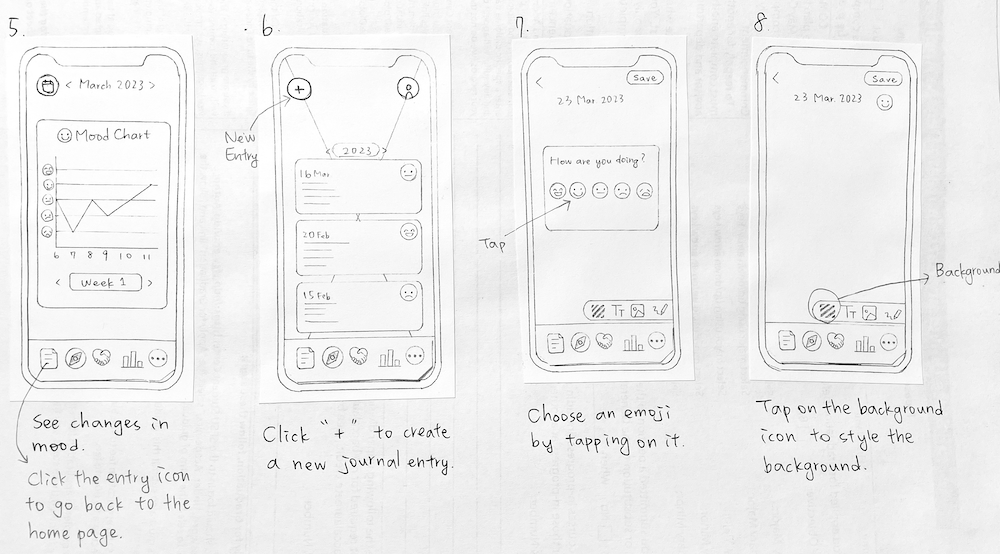 5.
< March 2023 >
Mood Chart
6 7 8 9 10 11
< Week 1 >
See changes in
mood.
Click the entry icon
to go back to the
home page.
6.
+
New
Entry
< 2023 >
16 Mar
20 Feb
15 Feb
Click "+" to create
a new journal entry.
7.
< Save
23 Mar 2023
How are you doing?
Tap
TT
Choose an emoji
by tapping on it.
8.
< Save
23 Mar. 2023
Background
TT
Tap on the background
icon to style the
background.